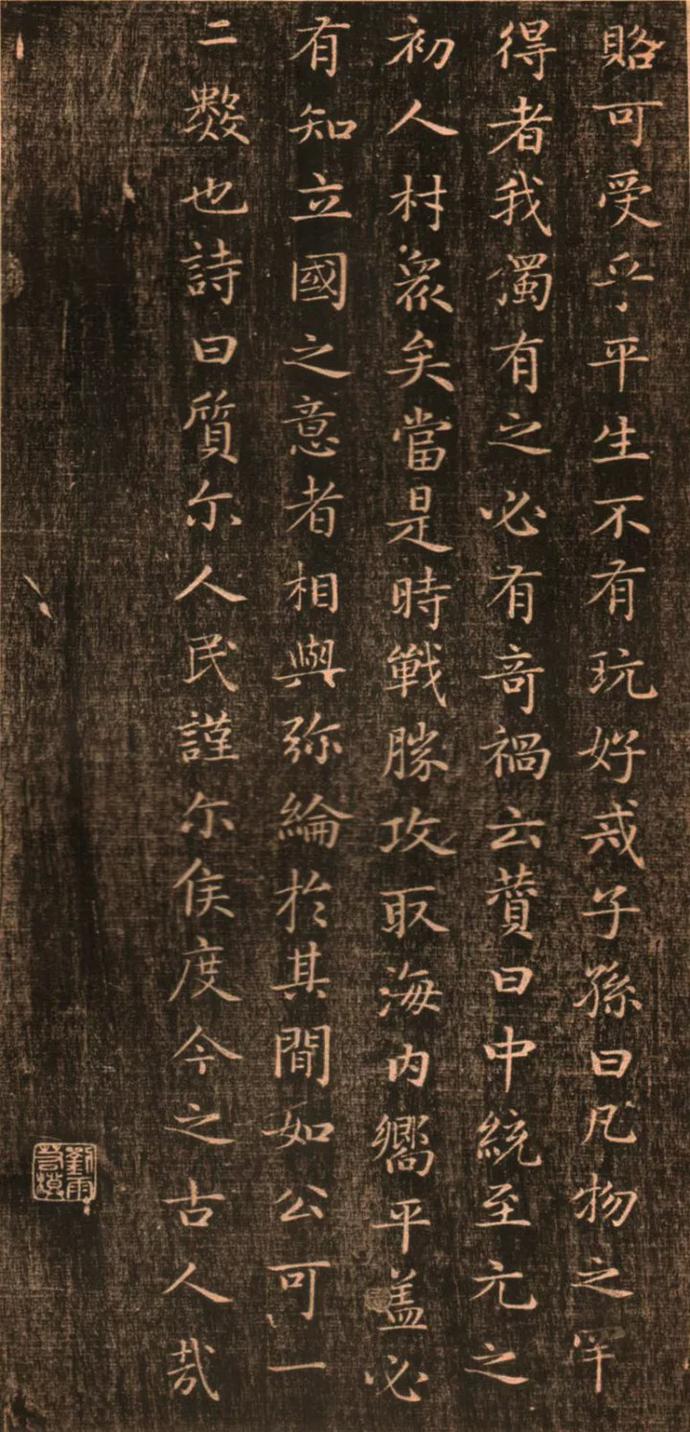 賂可受乎平生不有玩好戒子孫曰凡物之罕
得者我獨有之必有奇禍云蕒曰中統至元之
初人材衆矣當是時戰勝攻取海内嚮平盖必
有知立國之意者相與弥綸於其間如公可一
二數也詩曰質尓人民謹尓侯度今之古人哉